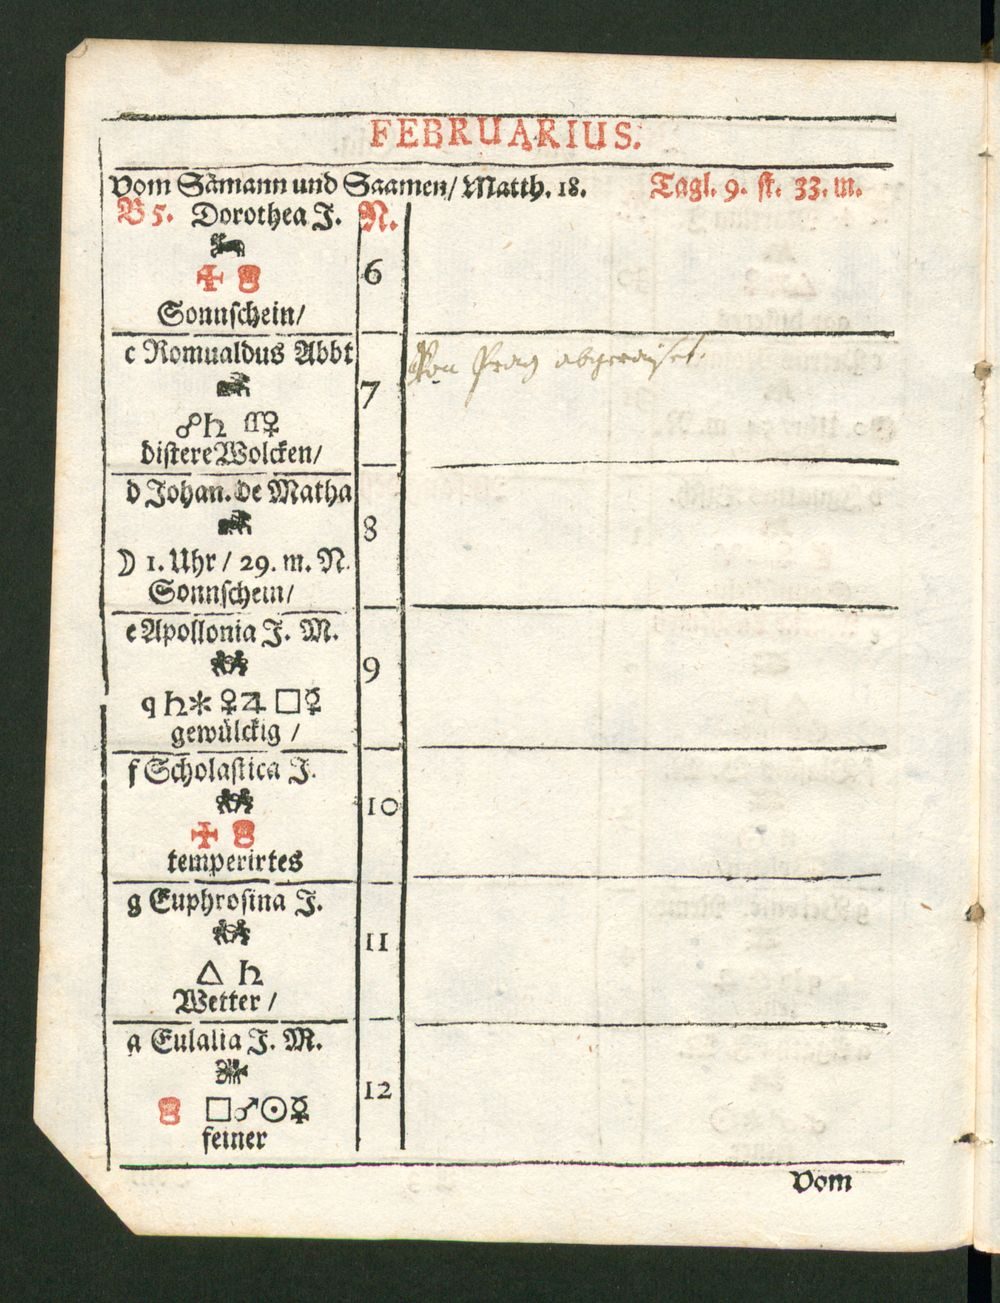 FEBRUARIUS.
Vom Sämann und Saamen / Matth. 18. Tagl. 9. st. 33. m.
B 5. Dorothea J. N.
6
Sonnschein /
c Romualdus Abbt
Von Prag abgeraiset.
7
☍♄ ♀
distere Wolcken /
d Johan. de Matha
8
☽ 1. Uhr / 29. m. N.
Sonnschein /
e Apollonia J. M.
9
q ♄ ⚹ ♀ ♃ □ ☿
gewülckig /
f Scholastica J.
10
temperirtes
g Euphrosina J.
11
△ ♄
Wetter /
a Eulalia J. M.
12
□ ♂ ☉ ☿
feiner
Vom